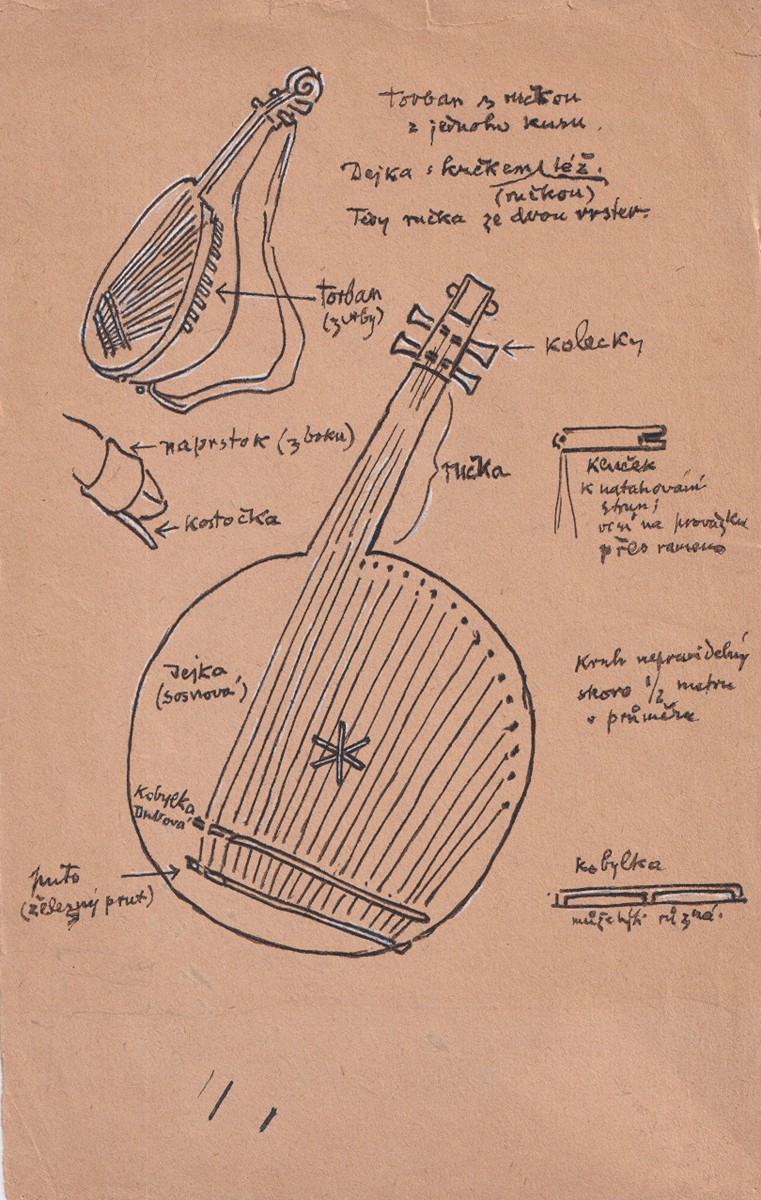 Torban s ručkou
z jednoho kusu.
Dejka s krčkem též.
(ručkou)
Tedy ručka ze dvou vrstev.
Torban
(z vrby)
kolečky
naprstok (z boku)
kostočka
ručka
Klúček
k natahování
strun;
visí na provázku
přes rameno
Dejka
(sosnová)
Kruh nepravidelný
skoro 1/2 metru
v průměru
Kobylka
Dubová
puto
(železný prut)
Kobylka
může být různá.